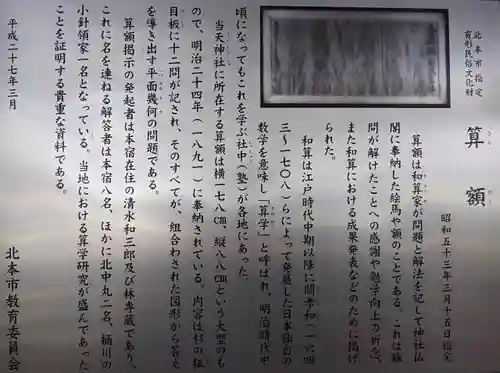 北本市指定
有形民俗文化財
算額
さん がく
昭和五十三年三月十五日指定
算額は和算家が問題と解法を記して神社仏
閣に奉納した絵馬や額のことである。これは難
問が解けたことへの感謝や勉学向上の祈念、
また和算における成果発表などのために掲げ
られた。
和算は江戸時代中期以降に関孝和（一六四
三～一七〇八）らによって発展した日本独自の
数学を意味し「算学」と呼ばれ、明治時代中
頃になってもこれを学ぶ社中（塾）が各地にあった。
当天神社に所在する算額は横一七八㎝、縦八八㎝という大型のも
ので、明治二十四年（一八九一）に奉納されている。内容は杉の柾
目板に十二問が記され、そのすべてが、組合わされた図形から答え
を導き出す平面幾何の問題である。
算額掲示の発起者は本宿在住の清水和三郎及び林専蔵であり、
これに名を連ねる解答者は本宿八名、ほかに北中丸二名、桶川の
小針領家一名となっている。当地における算学研究が盛んであった
ことを証明する貴重な資料である。
平成二十七年三月
北本市教育委員会